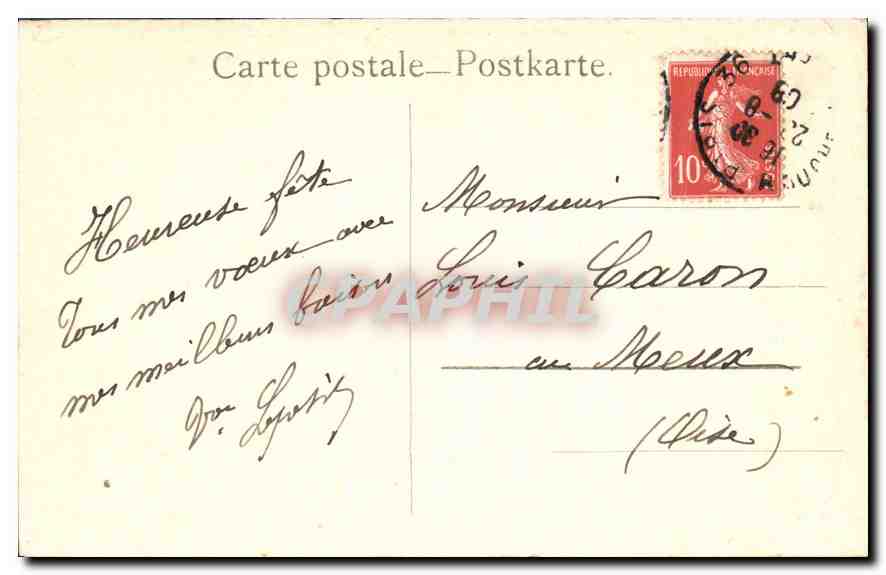 Carte postale — Postkarte.
REPUBLIQUE FRANÇAISE
10
PARIS 36
Heureuse fête
Tous mes vœux avec
mes meilleurs baisers
Monsieur
Louis Caron
au Meux
(Oise)
CPAPHIL